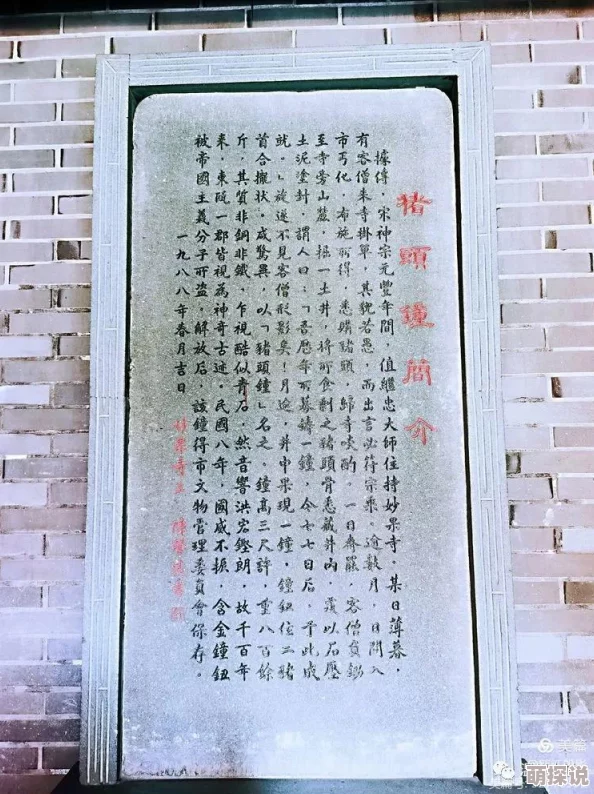 猪頭鐘簡介
據傳，宋神宗元豐年間，值繼忠大師住持妙果寺，某日薄暮，
有客僧來寺掛單，其貌若愚，而出言必符宗乘。逾數月，日間入
市丐化，布施所得，悉購猪頭，歸寺啖酌。一日齋罷，客僧負鋤
至寺旁山麓，掘一土井，將所食剩之猪頭骨悉藏井內，覆以石壓
土泥塗封，謂人曰：「吾歷年所募鑄一鐘，今七七日后，于此成
就。」旋遂不見客僧形影矣！月逾，井中果現一鐘，鐘鈕位二猪
首合攏狀，咸驚異，以「猪頭鐘」名之。鐘高三尺許，重八百餘
斤，其質非銅非鐵，乍視酷似青石，然音響洪宏鏗朗，故千百年
來，東甌一郡皆視為神奇古迹。民國八年，國威不振，含金鐘鈕
被帝國主義分子所盜，解放后，該鐘得市文物管理委員會保存。
一九八八年春月吉日
美篇
萌探说